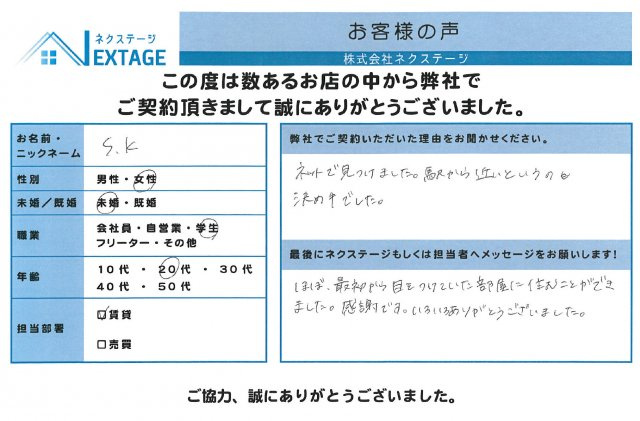 ネクステージ
NEXTAGE
お客様の声
株式会社ネクステージ
この度は数あるお店の中から弊社で
ご契約頂きまして誠にありがとうございました。
お名前・
ニックネーム
S.K
性別
男性・女性
未婚/既婚
未婚・既婚
職業
会社員・自営業・学生
フリーター・その他
年齢
10代 ・ 20代 ・ 30代
40代 ・ 50代
担当部署
☑賃貸
□売買
弊社でご契約いただいた理由をお聞かせください。
ネットで見つけました。駅から近いというのも
決め手でした。
最後にネクステージもしくは担当者へメッセージをお願いします!
ほぼ、最初から目をつけていた部屋に住むことができ
ました。感謝です。いろいろありがとうございました。
ご協力、誠にありがとうございました。